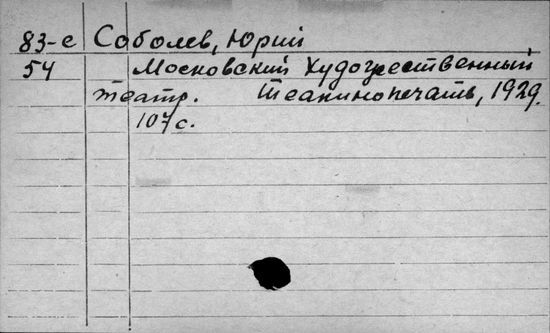 83-е Соболев, Юрий
54 Московский Художественный
театр. Теакинопечать, 1929.
107 с.